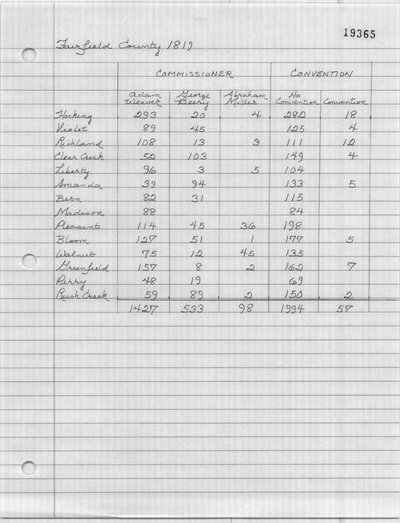 19365
Fairfield County 1819
COMMISSIONER CONVENTION
Adam Weaver George Beery Abraham Miller No Convention Convention
Hocking 293 20 4 282 18
Violet 89 45 125 4
Richland 108 13 3 111 12
Clear Creek 52 103 149 4
Liberty 96 3 5 104
Amanda 39 94 133 5
Bern 82 31 115
Madison 88 84
Pleasant 114 45 36 198
Bloom 127 51 1 177 5
Walnut 75 12 45 135
Greenfield 157 8 2 162 7
Perry 48 19 69
Rush Creek 59 89 2 150 2
1427 533 98 1994 57